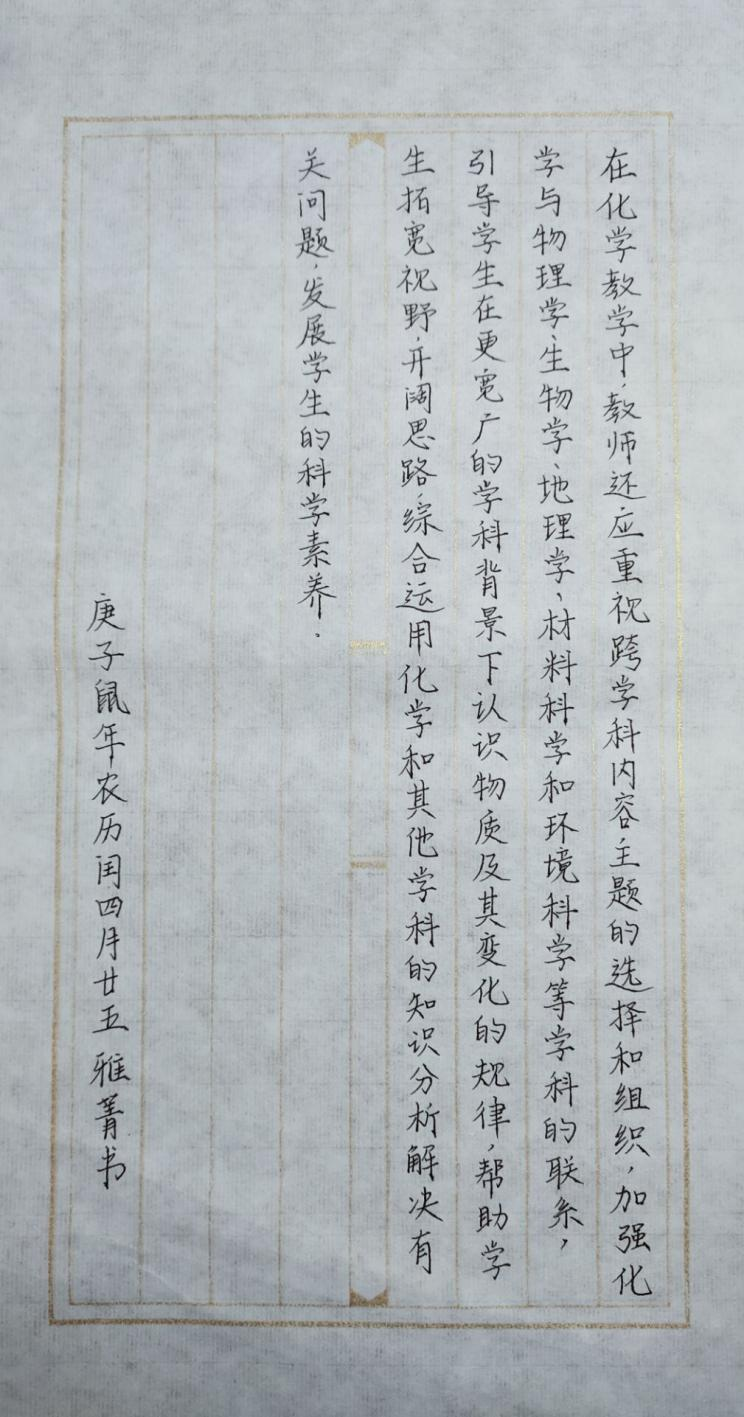 在化学教学中，教师还应重视跨学科内容主题的选择和组织，加强化
学与物理学、生物学、地理学、材料科学和环境科学等学科的联系，
引导学生在更宽广的学科背景下认识物质及其变化的规律，帮助学
生拓宽视野，开阔思路，综合运用化学和其他学科的知识分析解决有
关问题，发展学生的科学素养．
庚子鼠年农历闰四月廿五 雅菁书